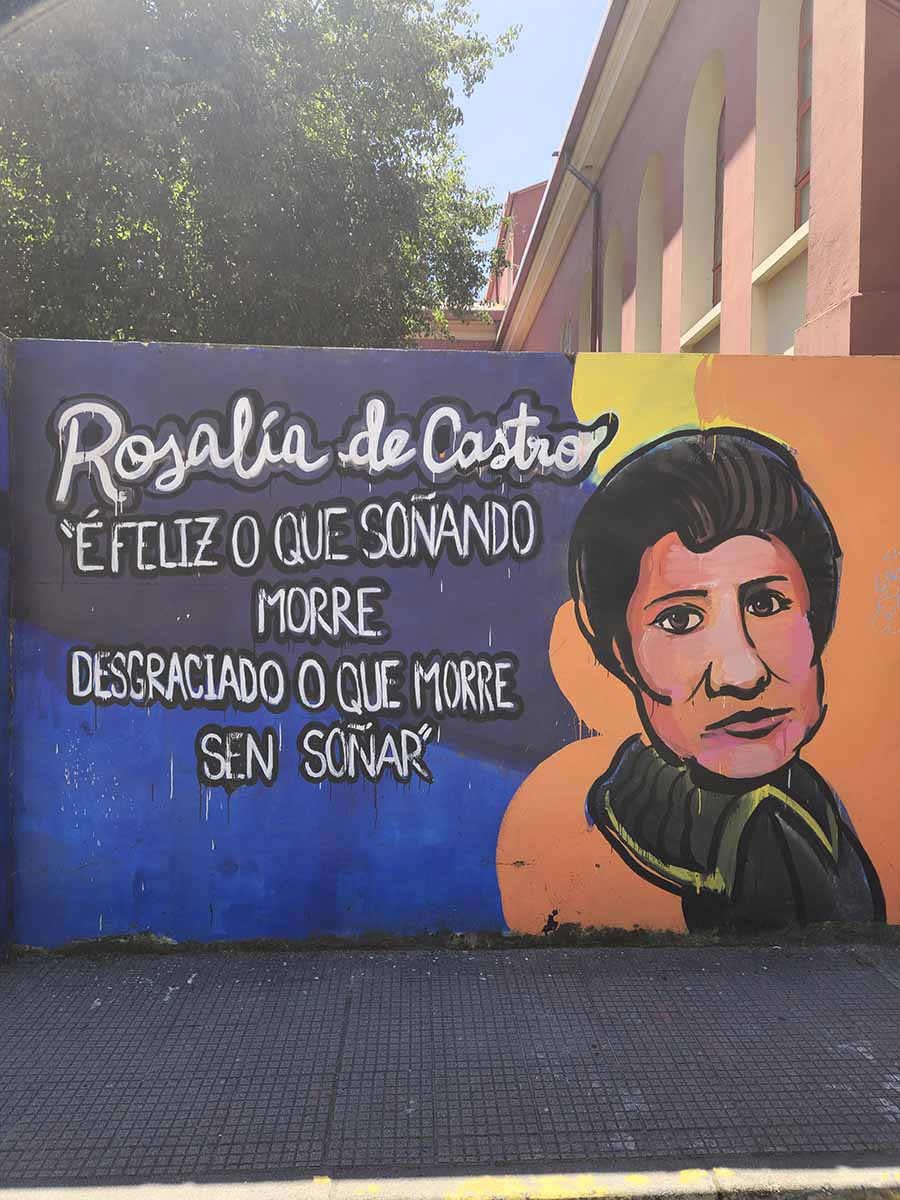 Rosalía de Castro
"É FELIZ O QUE SOÑANDO
MORRE
DESGRACIADO O QUE MORRE
SEN SOÑAR"